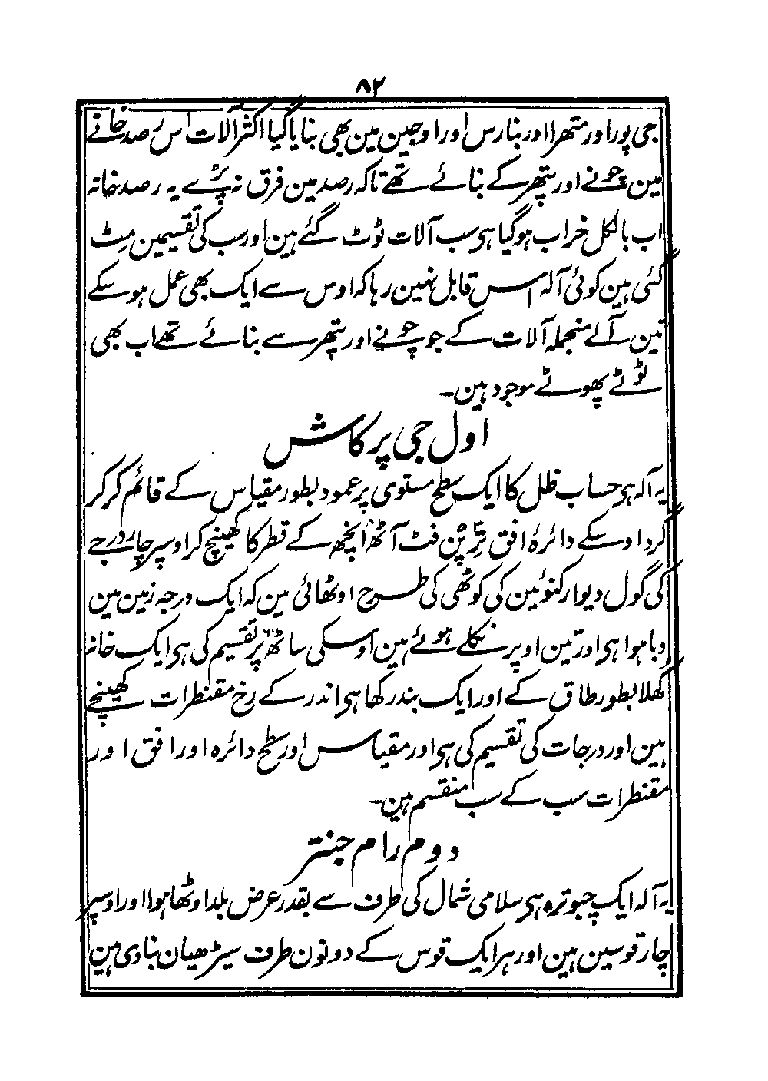 ۸۲
جی پور اور متھرا اور بنارس اور اوجین مین بھی بنایا گیا اکثر آلات اس رصد خانے
مین چونے اور پتھر کے بنائے تھے تاکہ رصد مین فرق نہ پڑے یہ رصد خانہ
اب بالکل خراب ہوگیا ہی سب آلات ٹوٹ گئے ہین اور سب کی تقسیمین مٹ
گئی ہین کوئی آلہ اس قابل نہین رہا کہ اوس سے ایک بھی عمل ہو سکے
تین آلے منجملہ آلات کے جو چونے اور پتھر سے بنائے تھے اب بھی
ٹوٹے پھوٹے موجود ہین۔
اول جی پرکاش
یہ آلہ ہر حساب ظل کا ایک سطح مستوی پر عمود بطور مقیاس کے قائم کر کر
گرد اوسکے دائرۂ افق ترپن فٹ آٹھ انچھ کے قطر کا کھینچ کر اوسپر چار درجے
کی گول دیوار کنوئین کی کوٹھی کی طرح اوٹھائی ہین کہ ایک درجہ زمین مین
دبا ہوا ہی اور تین اوپر نکلے ہوئے ہین اوسکی ساٹھ پر تقسیم کی ہی ایک خانہ
کھلا بطور طاق کے اور ایک بند رکھا ہی اندر کے رخ مقنطرات کھینچے
ہین اور درجات کی تقسیم کی ہی اور مقیاس اور سطح دائرہ اور افق اور
مقنطرات سب کے سب منقسم ہین۔
دوم رام جنتر
یہ آلہ ایک چبوترہ ہی سلامی شمال کی طرف سے بقدر عرض بلد اوٹھا ہوا اور اوسپر
چار قوسین ہین اور ہر ایک قوس کے دونون طرف سیڑھیان بنا دی ہین